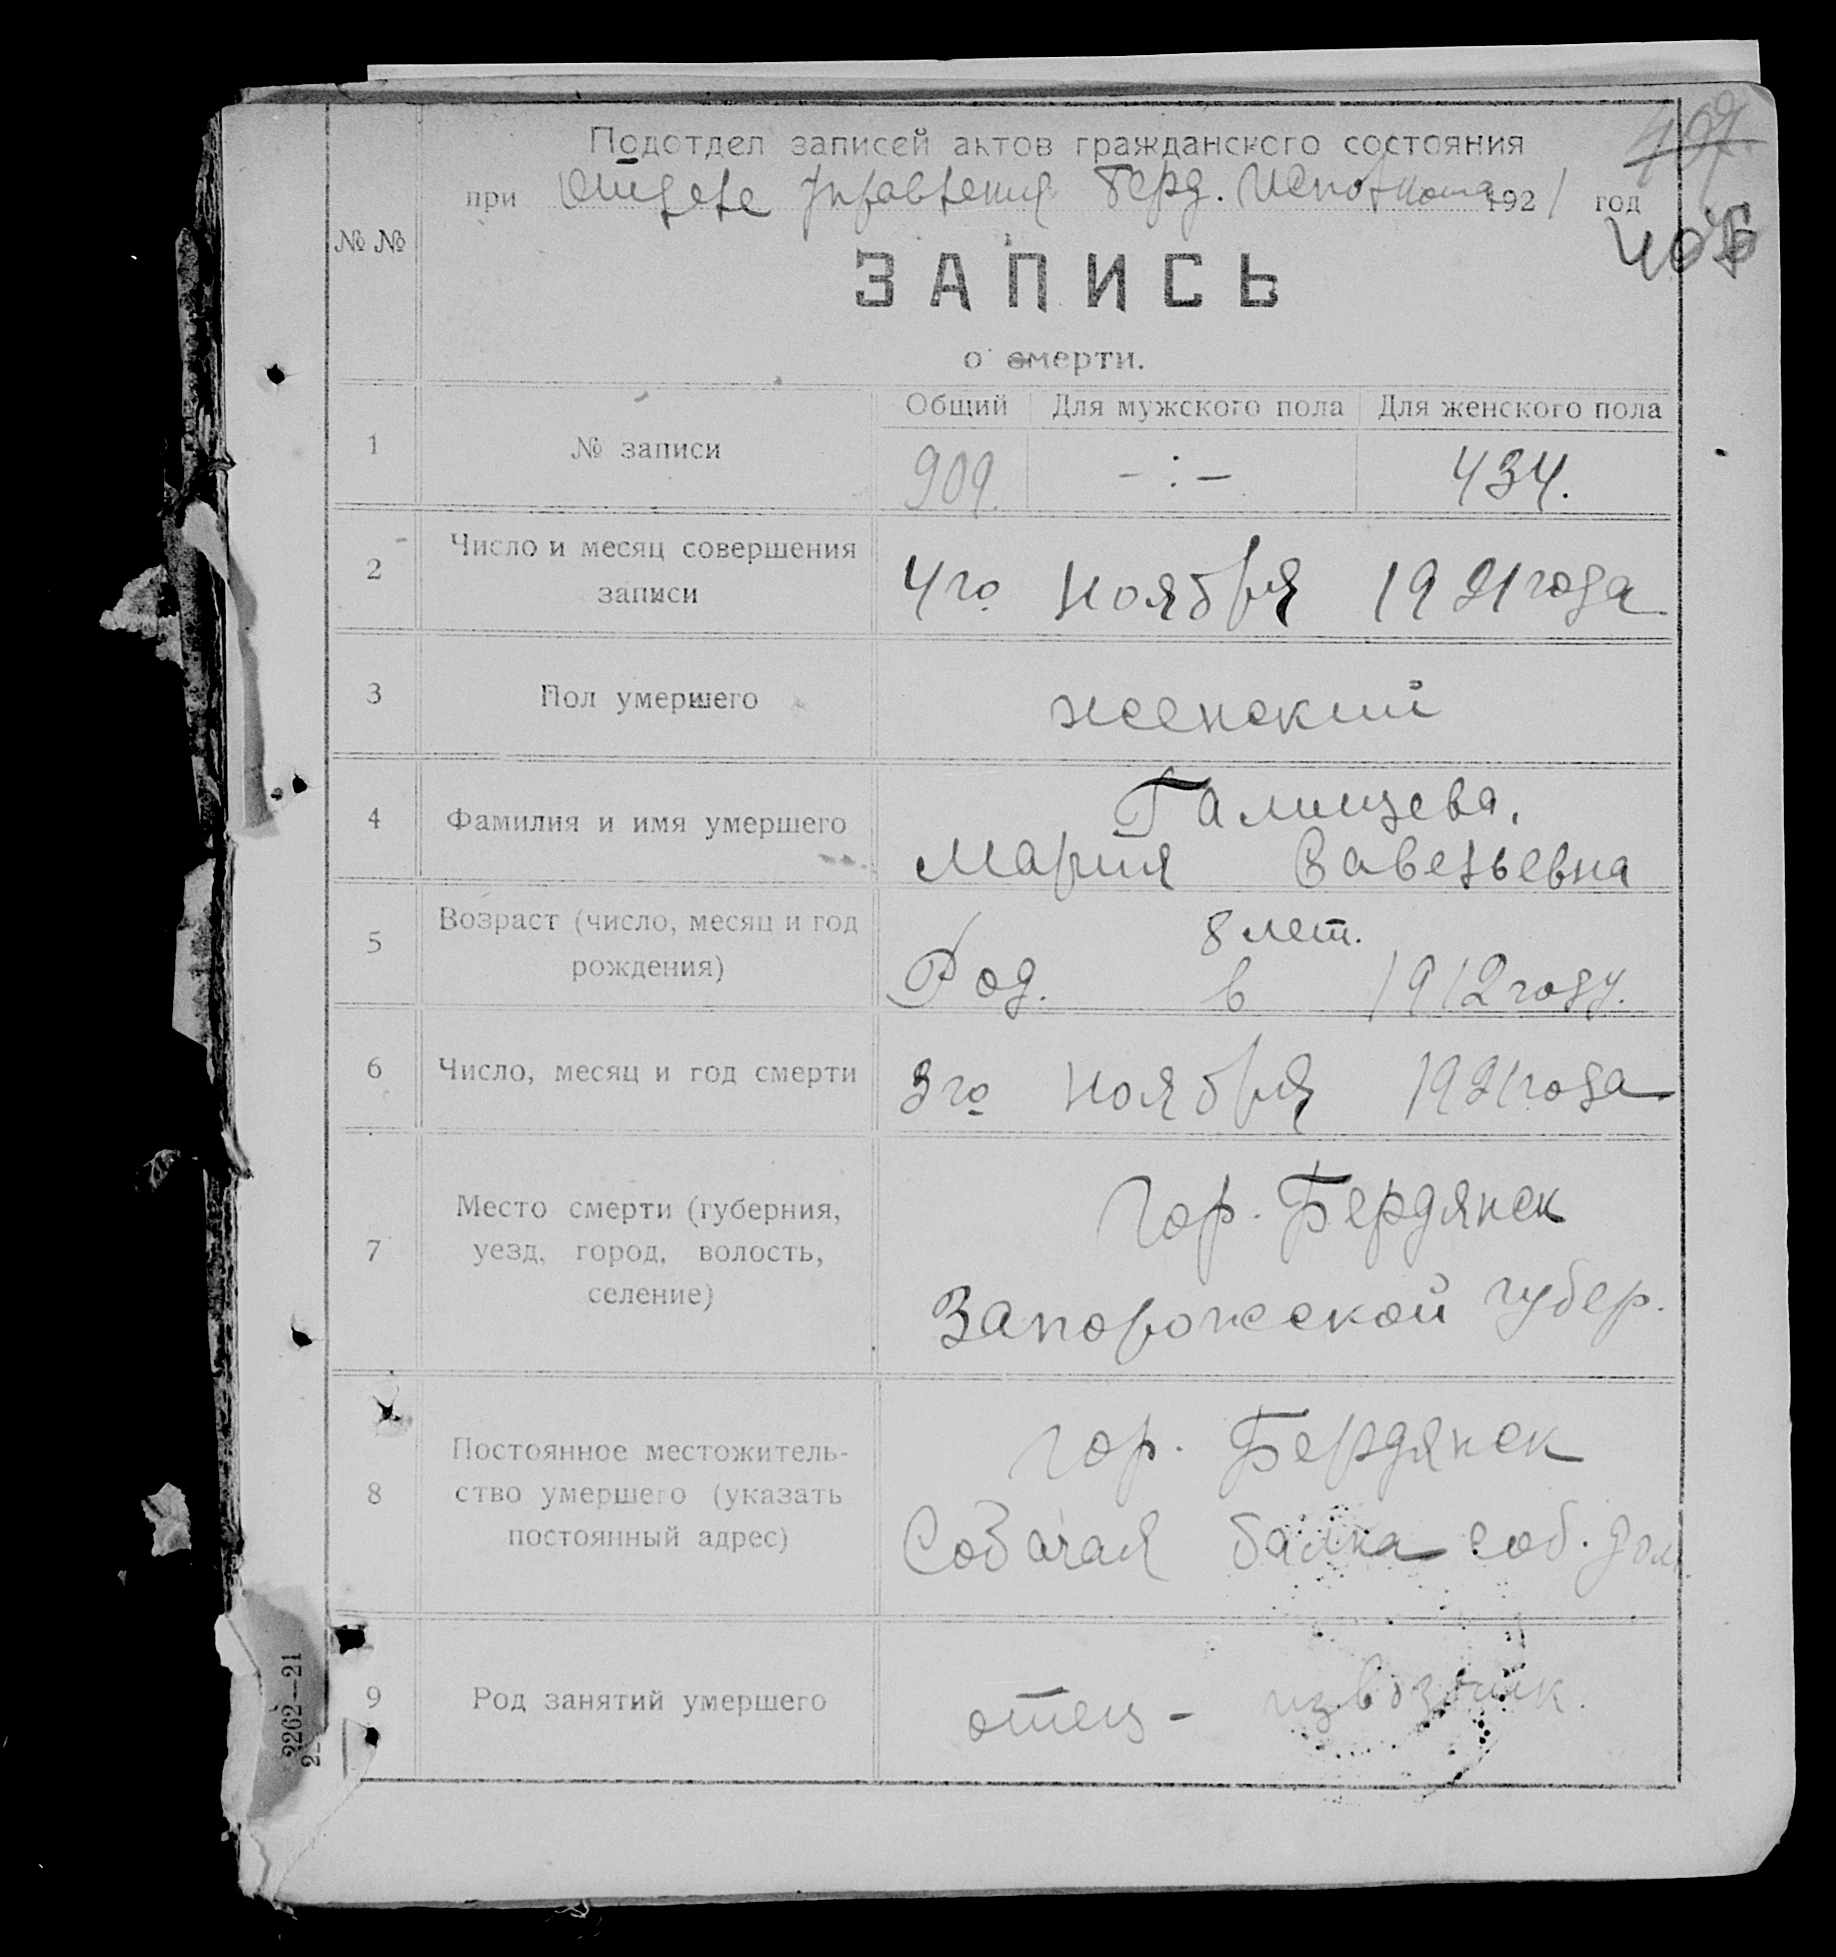 407.
406
Подотдел записей актов гражданского состояния
при Отделе Управления Берд. Исполкома 1921 год
№ №
ЗАПИСЬ
о смерти.
Общий Для мужского пола Для женского пола
1 № записи 909. - : - 434.
2 Число и месяц совершения
записи
4го Ноября 1921 года
3 Пол умершего женский
4 Фамилия и имя умершего
Галицева,
Мария Савельевна
5 Возраст (число, месяц и год
рождения)
8 лет.
Род. в 1912 году.
6 Число, месяц и год смерти 3го Ноября 1921 года.
7 Место смерти (губерния,
уезд, город, волость,
селение)
Гор. Бердянск
Запорожской губер.
8 Постоянное местожитель-
ство умершего (указать
постоянный адрес)
гор. Бердянск
Собачая балка соб. дом.
9 Род занятий умершего отец - извозчик.
2262—21